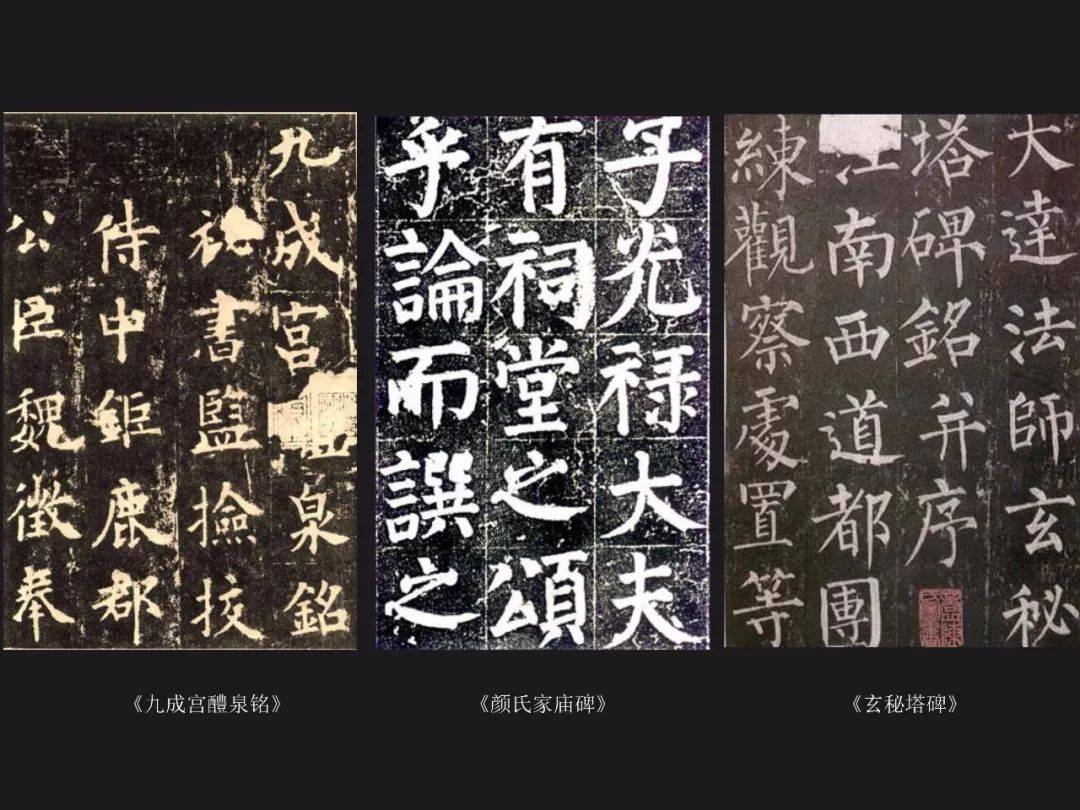 九成宮泉銘
秘書監撿挍
侍中鉅鹿郡
公臣魏徵奉
子光禄大夫
有祠堂之頌
乎論而譔之
大達法師玄秘
塔碑銘并序
江南西道都團
練觀察處置等
《九成宫醴泉铭》
《颜氏家庙碑》
《玄秘塔碑》